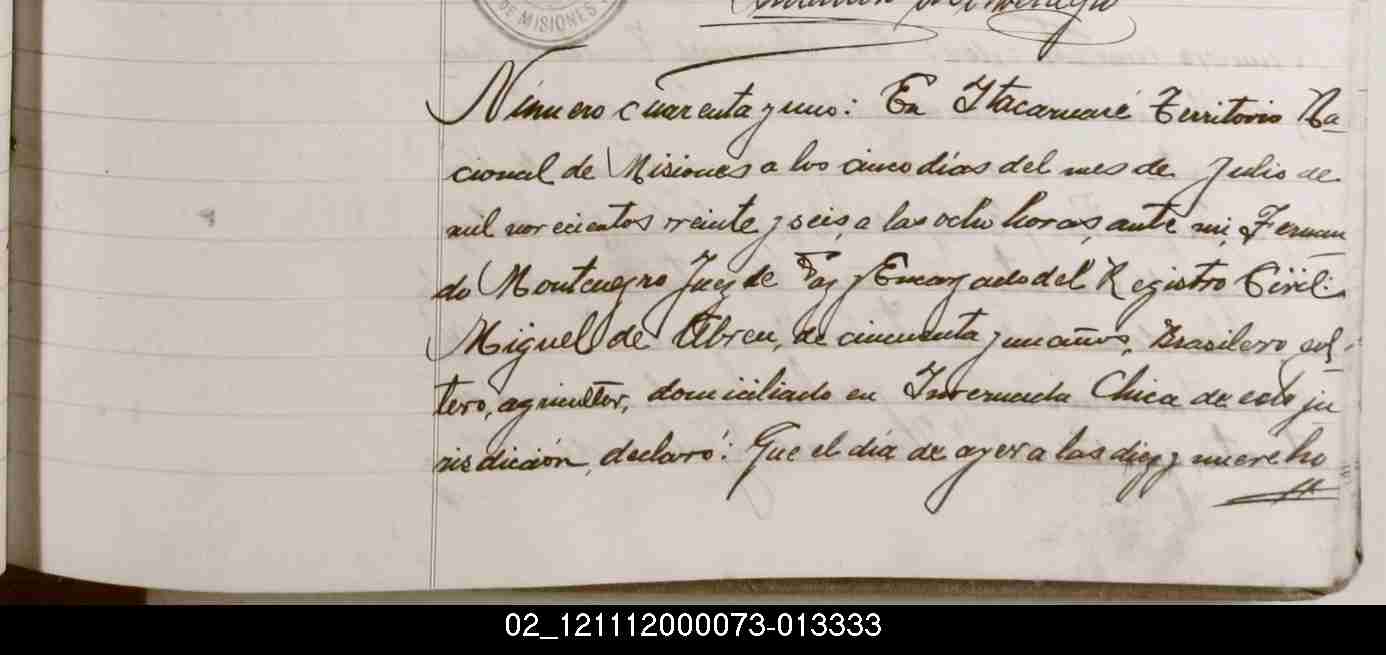 DE MISIONES
Número cuarenta y uno: En Itacaruaré Territorio Na
cional de Misiones a los cinco días del mes de Julio de
mil novecientos treinta y seis, a las ocho horas, ante mi, Fernan
do Montenegro Juez de Paz y Encargado del Registro Civil:
Miguel de Abreu, de cincuenta y un años, Brasilero sol-
tero, agricultor, domiciliado en Invernada Chica de esta ju
risdicción, declaró: Que el día de ayer a las diez y nueve ho
02_121112000073-013333